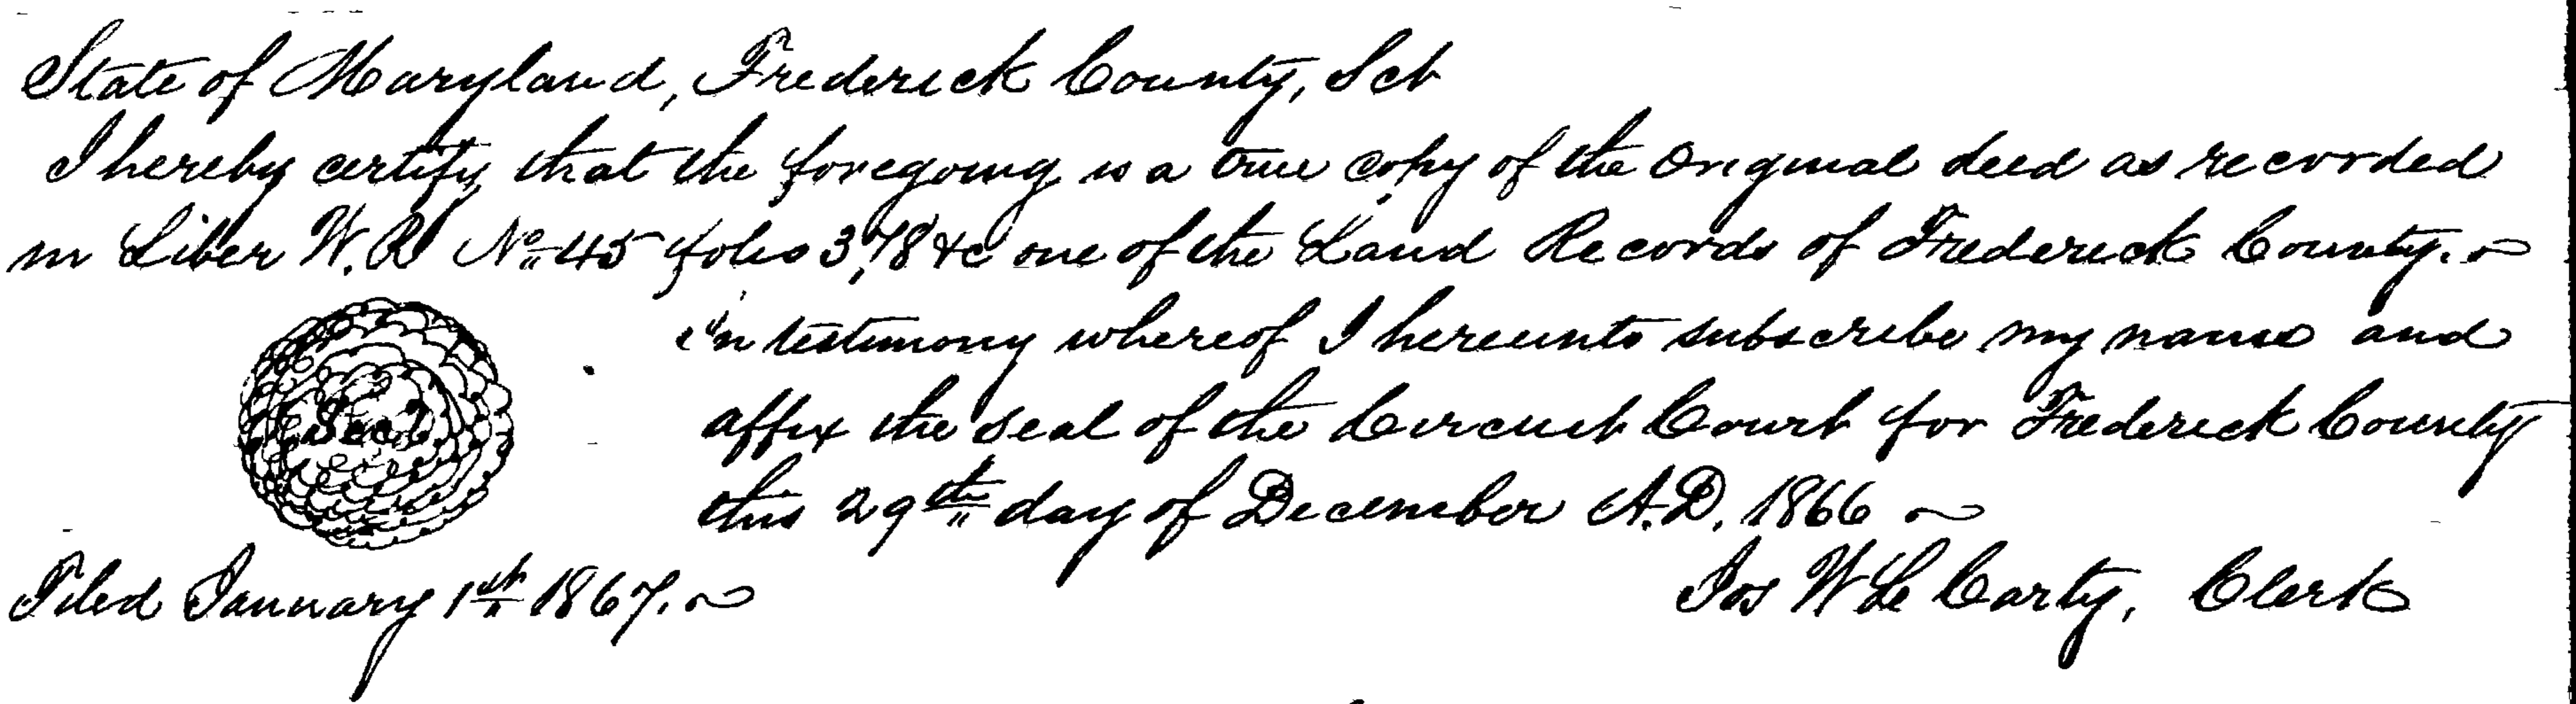 State of Maryland, Frederick County, Sct
I hereby certify that the foregoing is a true copy of the Original deed as recorded
in Liber W.R No 45 folio 378 &c one of the Land Records of Frederick County.
In testimony whereof I hereunto subscribe my name and
affix the seal of the Circuit Court for Frederick County
this 29th day of December A.D. 1866
Seal
Filed January 1st 1867.
Jos W Le Carty, Clerk